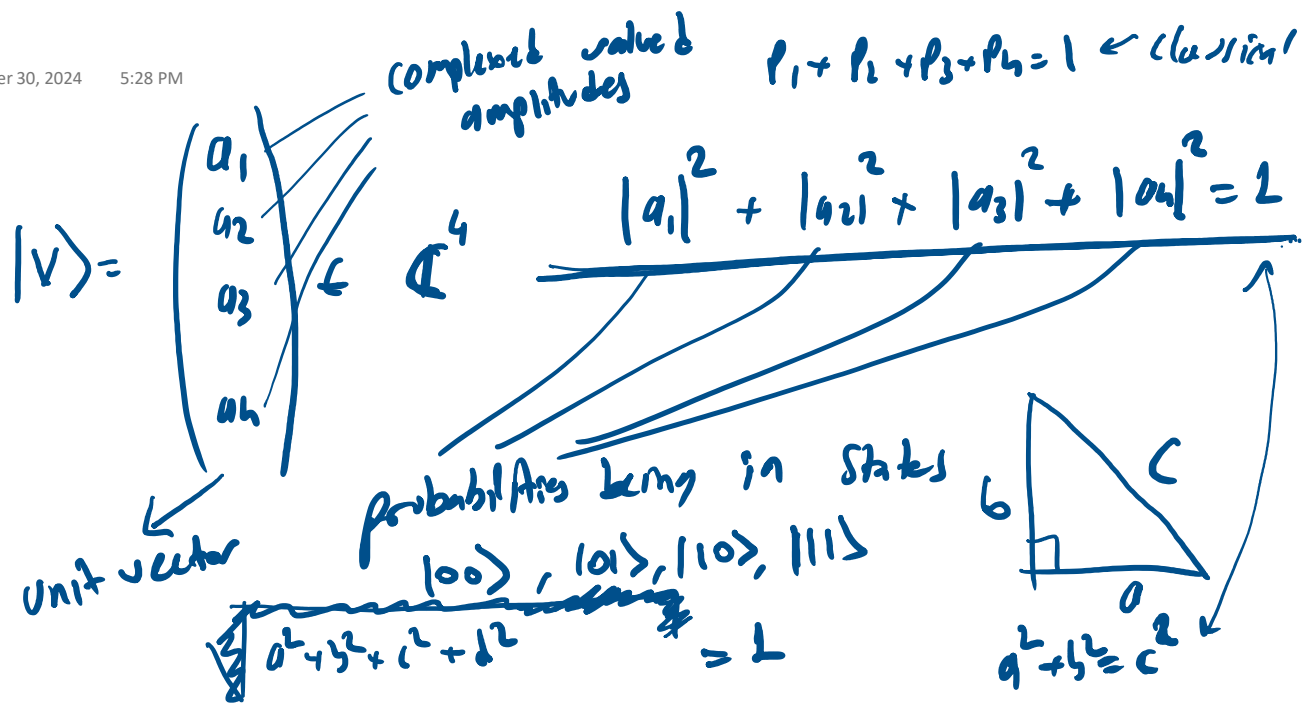 er 30, 2024 5:28 PM
complexed valued
amplitudes
P₁ + P₂ + P₃ + P₄ = 1 ← classical
|V⟩ = (a₁ a₂ a₃ a₄) ∈ ℂ⁴
|a₁|² + |a₂|² + |a₃|² + |a₄|² = 1
probabilities being in states
|00⟩, |01⟩, |10⟩, |11⟩
unit vector
√a² + b² + c² + d² = 1
b
c
a
a² + b² = c²